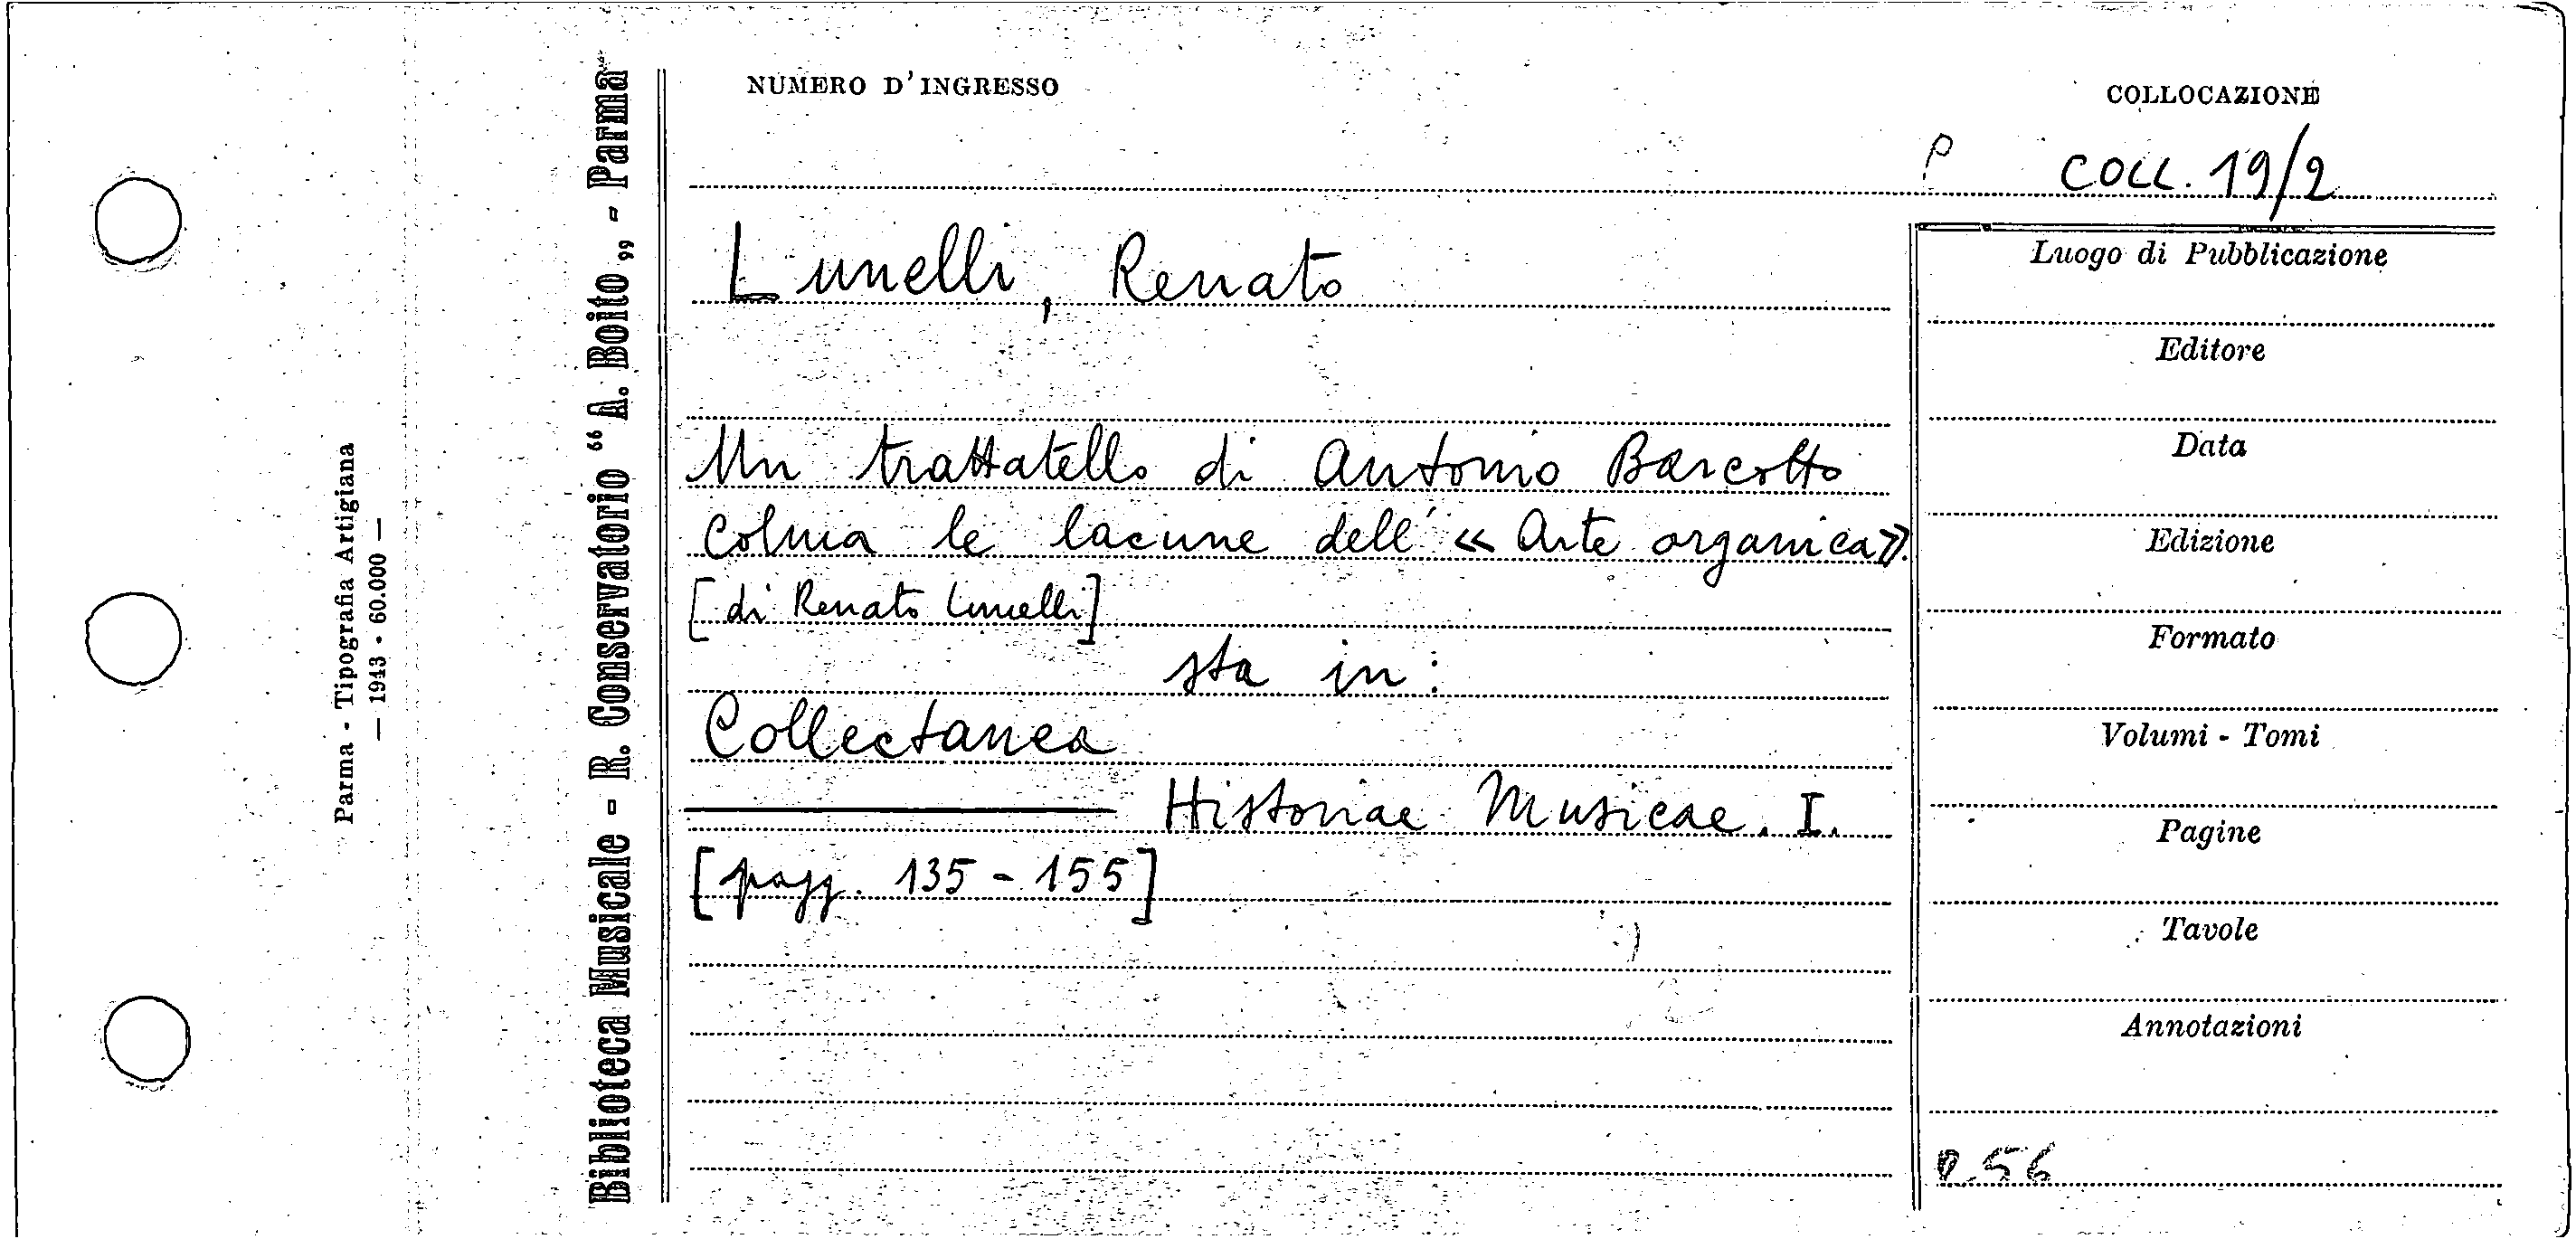 Parma - Tipografia Artigiana
— 1943 - 60.000 —
Biblioteca Musicale - R. Conservatorio “ A. Boito „ - Parma
NUMERO D'INGRESSO
COLLOCAZIONE
P COLL. 19/2
Lunelli, Renato
Un trattatello di Antonio Barcotto
colma le lacune dell' « Arte organica».
[di Renato Lunelli]
sta in:
Collectanea
Historiae Musicae. I.
[pagg. 135-155]
Luogo di Pubblicazione
Editore
Data
Edizione
Formato
Volumi - Tomi
Pagine
Tavole
Annotazioni
56